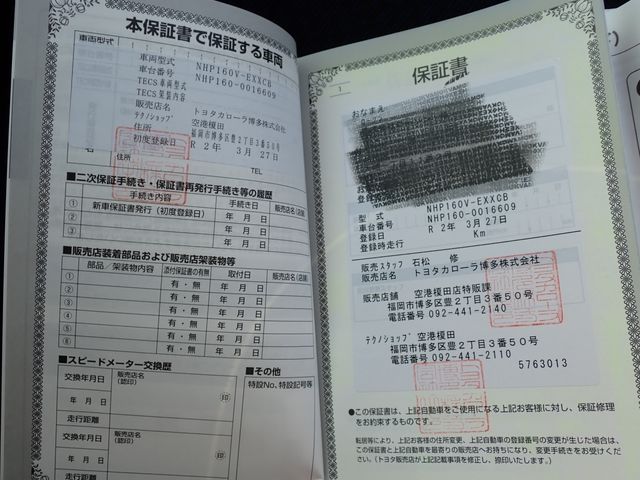 本保証書で保証する車両
車両型式
車両型式 NHP160V-EXXCB
車台番号 NHP160-0016609
TECS車両型式
TECS架装内容
販売店名 トヨタカローラ博多株式会社
テクノショップ 空港榎田
住所 福岡市博多区豊2丁目3番50号
初度登録日 R 2年 3月 27日
名
住所
TEL
■二次保証手続き・保証書再発行手続き等の履歴
手続き内容 手続き日 販売店名(店舗)
① 新車保証書発行(初度登録日) 年 月 日
② 年 月 日
③ 年 月 日
■販売店装着部品および販売店架装物等
部品/架装物内容 添付保証書の有無 取付日 販売店名(店舗)
① 有・無 年 月 日
② 有・無 年 月 日
③ 有・無 年 月 日
④ 有・無 年 月 日
⑤ 有・無 年 月 日
⑥ 有・無 年 月 日
■スピードメーター交換歴
交換年月日 販売店名(認印)
年 月 日 印
走行距離
交換年月日 販売店名(認印)
年 月 日 印
走行距離
■その他
特設No、特設記号等
1
保証書
おなまえ
型式 NHP160V-EXXCB
車台番号 NHP160-0016609
登録日 R 2年 3月 27日
登録時走行 Km
販売スタッフ 石松 修
販売店名 トヨタカローラ博多株式会社
販売店舗 空港榎田店特販課
福岡市博多区豊2丁目3番50号
電話番号 092-441-2140
テクノショップ 空港榎田
福岡市博多区豊2丁目3番50号
電話番号 092-441-2110
5763013
●この保証書は、上記自動車をご使用になる上記お客様に対し、保証修理
をお約束するものです。
転居等により、上記お客様の住所変更、上記自動車の登録番号の変更が生じた場合は、
この保証書と上記自動車を最寄りの販売店へお持ちになり、変更手続きをお受けくださ
い。(トヨタ販売店が上記記載事項を修正し、捺印いたします。)